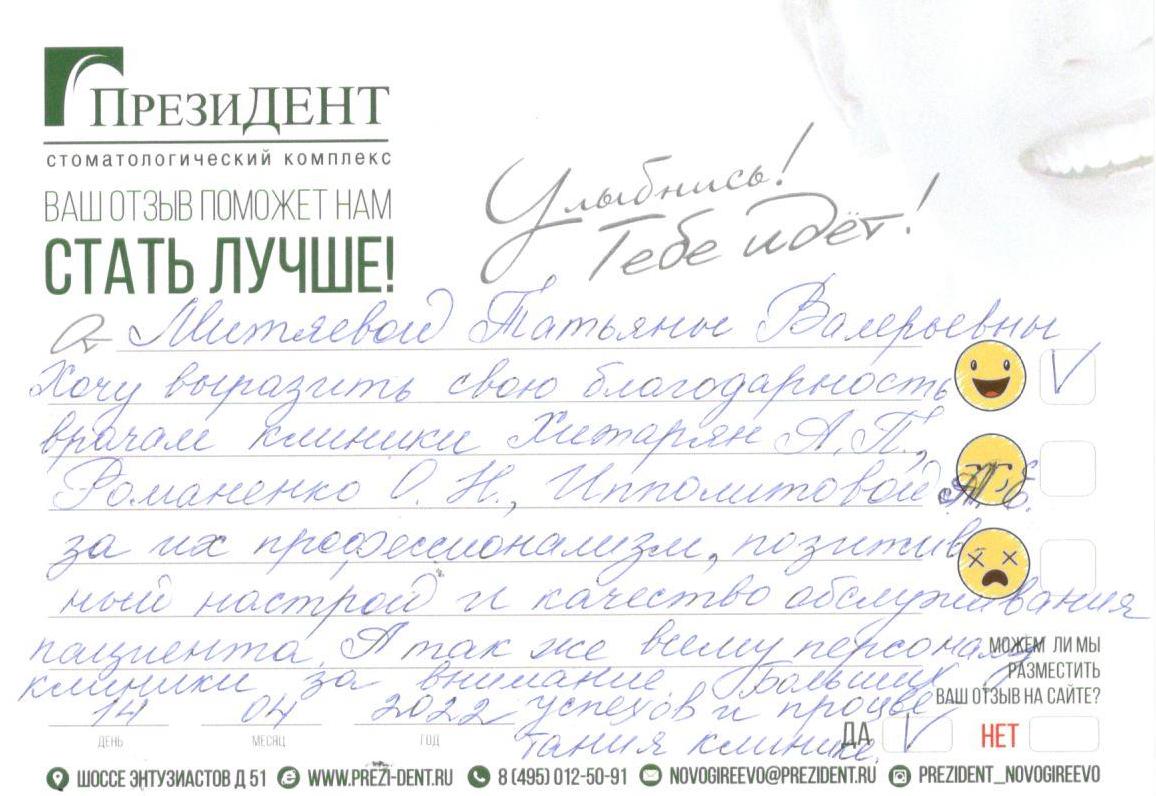 ПРЕЗИДЕНТ
стоматологический комплекс
ВАШ ОТЗЫВ ПОМОЖЕТ НАМ
СТАТЬ ЛУЧШЕ!
Улыбнись!
Тебе идёт!
От Митяевой Татьяны Валерьевны
Хочу выразить свою благодарность
врачам клиники Хитарян А.П.,
Романенко О.Н., Ипполитовой
за их профессионализм, позитив
ный настрой и качество обслуживания
пациента. А так же всему персоналу
клиники за внимание. Больших
успехов и процве
тания клинике.
14 04 2022
ДЕНЬ МЕСЯЦ ГОД
МОЖЕМ ЛИ МЫ
РАЗМЕСТИТЬ
ВАШ ОТЗЫВ НА САЙТЕ?
ДА НЕТ
ШОССЕ ЭНТУЗИАСТОВ Д 51 WWW.PREZI-DENT.RU 8 (495) 012-50-91 NOVOGIREEVO@PREZIDENT.RU PREZIDENT_NOVOGIREEVO